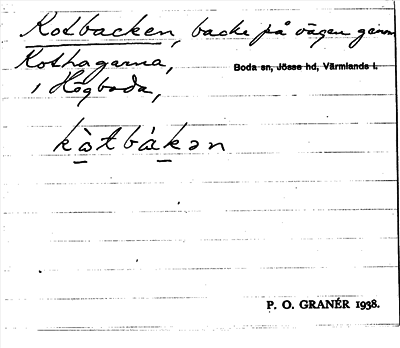 Kotbacken, backe på vägen genom
Kothagarna,
Boda sn, Jösse hd, Värmlands l.
i Högboda,
kὰtbákən
P. O. GRANÉR 1938.